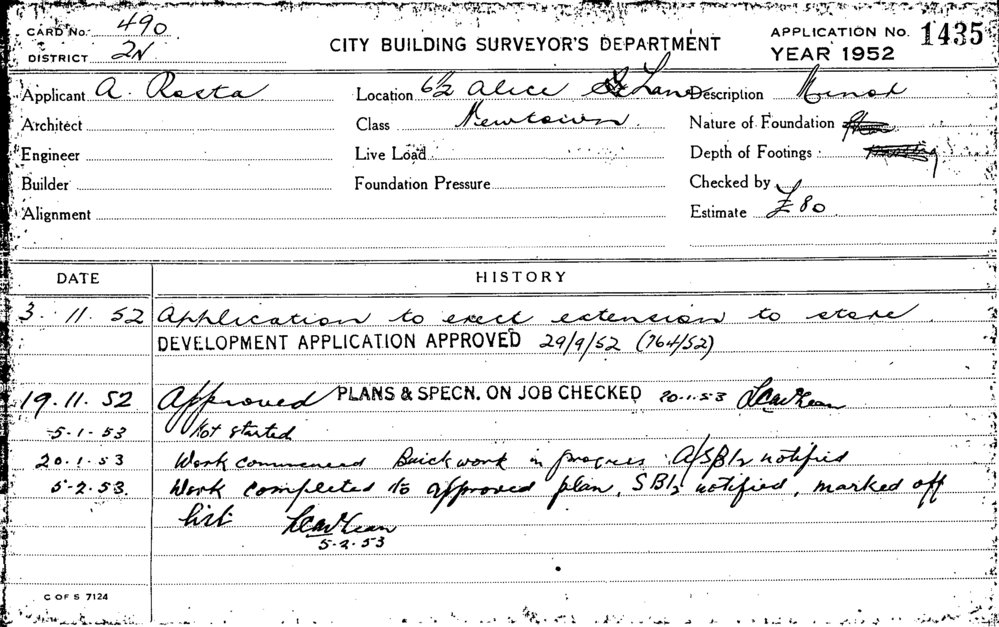 CARD No. 490
DISTRICT 2N
CITY BUILDING SURVEYOR'S DEPARTMENT
APPLICATION No. 1435
YEAR 1952
Applicant A. Rosta Location 6½ Alice St Lane Description Minor
Architect Class Newtown Nature of Foundation
Engineer Live Load Depth of Footings
Builder Foundation Pressure Checked by
Alignment Estimate £80
DATE HISTORY
3. 11. 52 Application to erect extension to store
DEVELOPMENT APPLICATION APPROVED 29/9/52 (764/52)
19. 11. 52 Approved PLANS & SPECN. ON JOB CHECKED 20.1.53
5.1.53 Not started
20.1.53 Work commenced Brickwork in progress notified
5.2.53. Work completed to approved plan, notified, marked off
list
5.2.53
C OF S 7124